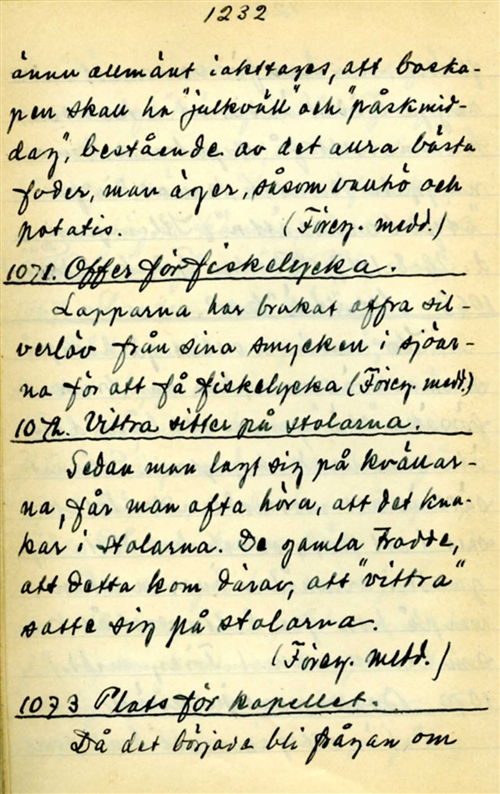 1232
ännu allmänt iakttages, att boska-
pen skall ha "julkväll" och "påskmid-
dag", bestående av det allra bästa
foder, man äger, såsom vallhö och
potatis. (Föreg. medd.)
1071. Offer för fiskelycka.
Lapparna har brukat offra sil-
verlöv från sina smycken i sjöar-
na för att få fiskelycka (Föreg. medd.)
1072. Vittra sitter på stolarna.
Sedan man lagt sig på kvällar-
na, får man ofta höra, att det kna-
kar i stolarna. De gamla trodde,
att detta kom därav, att "vittra"
satte sig på stolarna.
(Föreg. medd.)
1073 Plats för kapellet.
Då det började bli frågan om